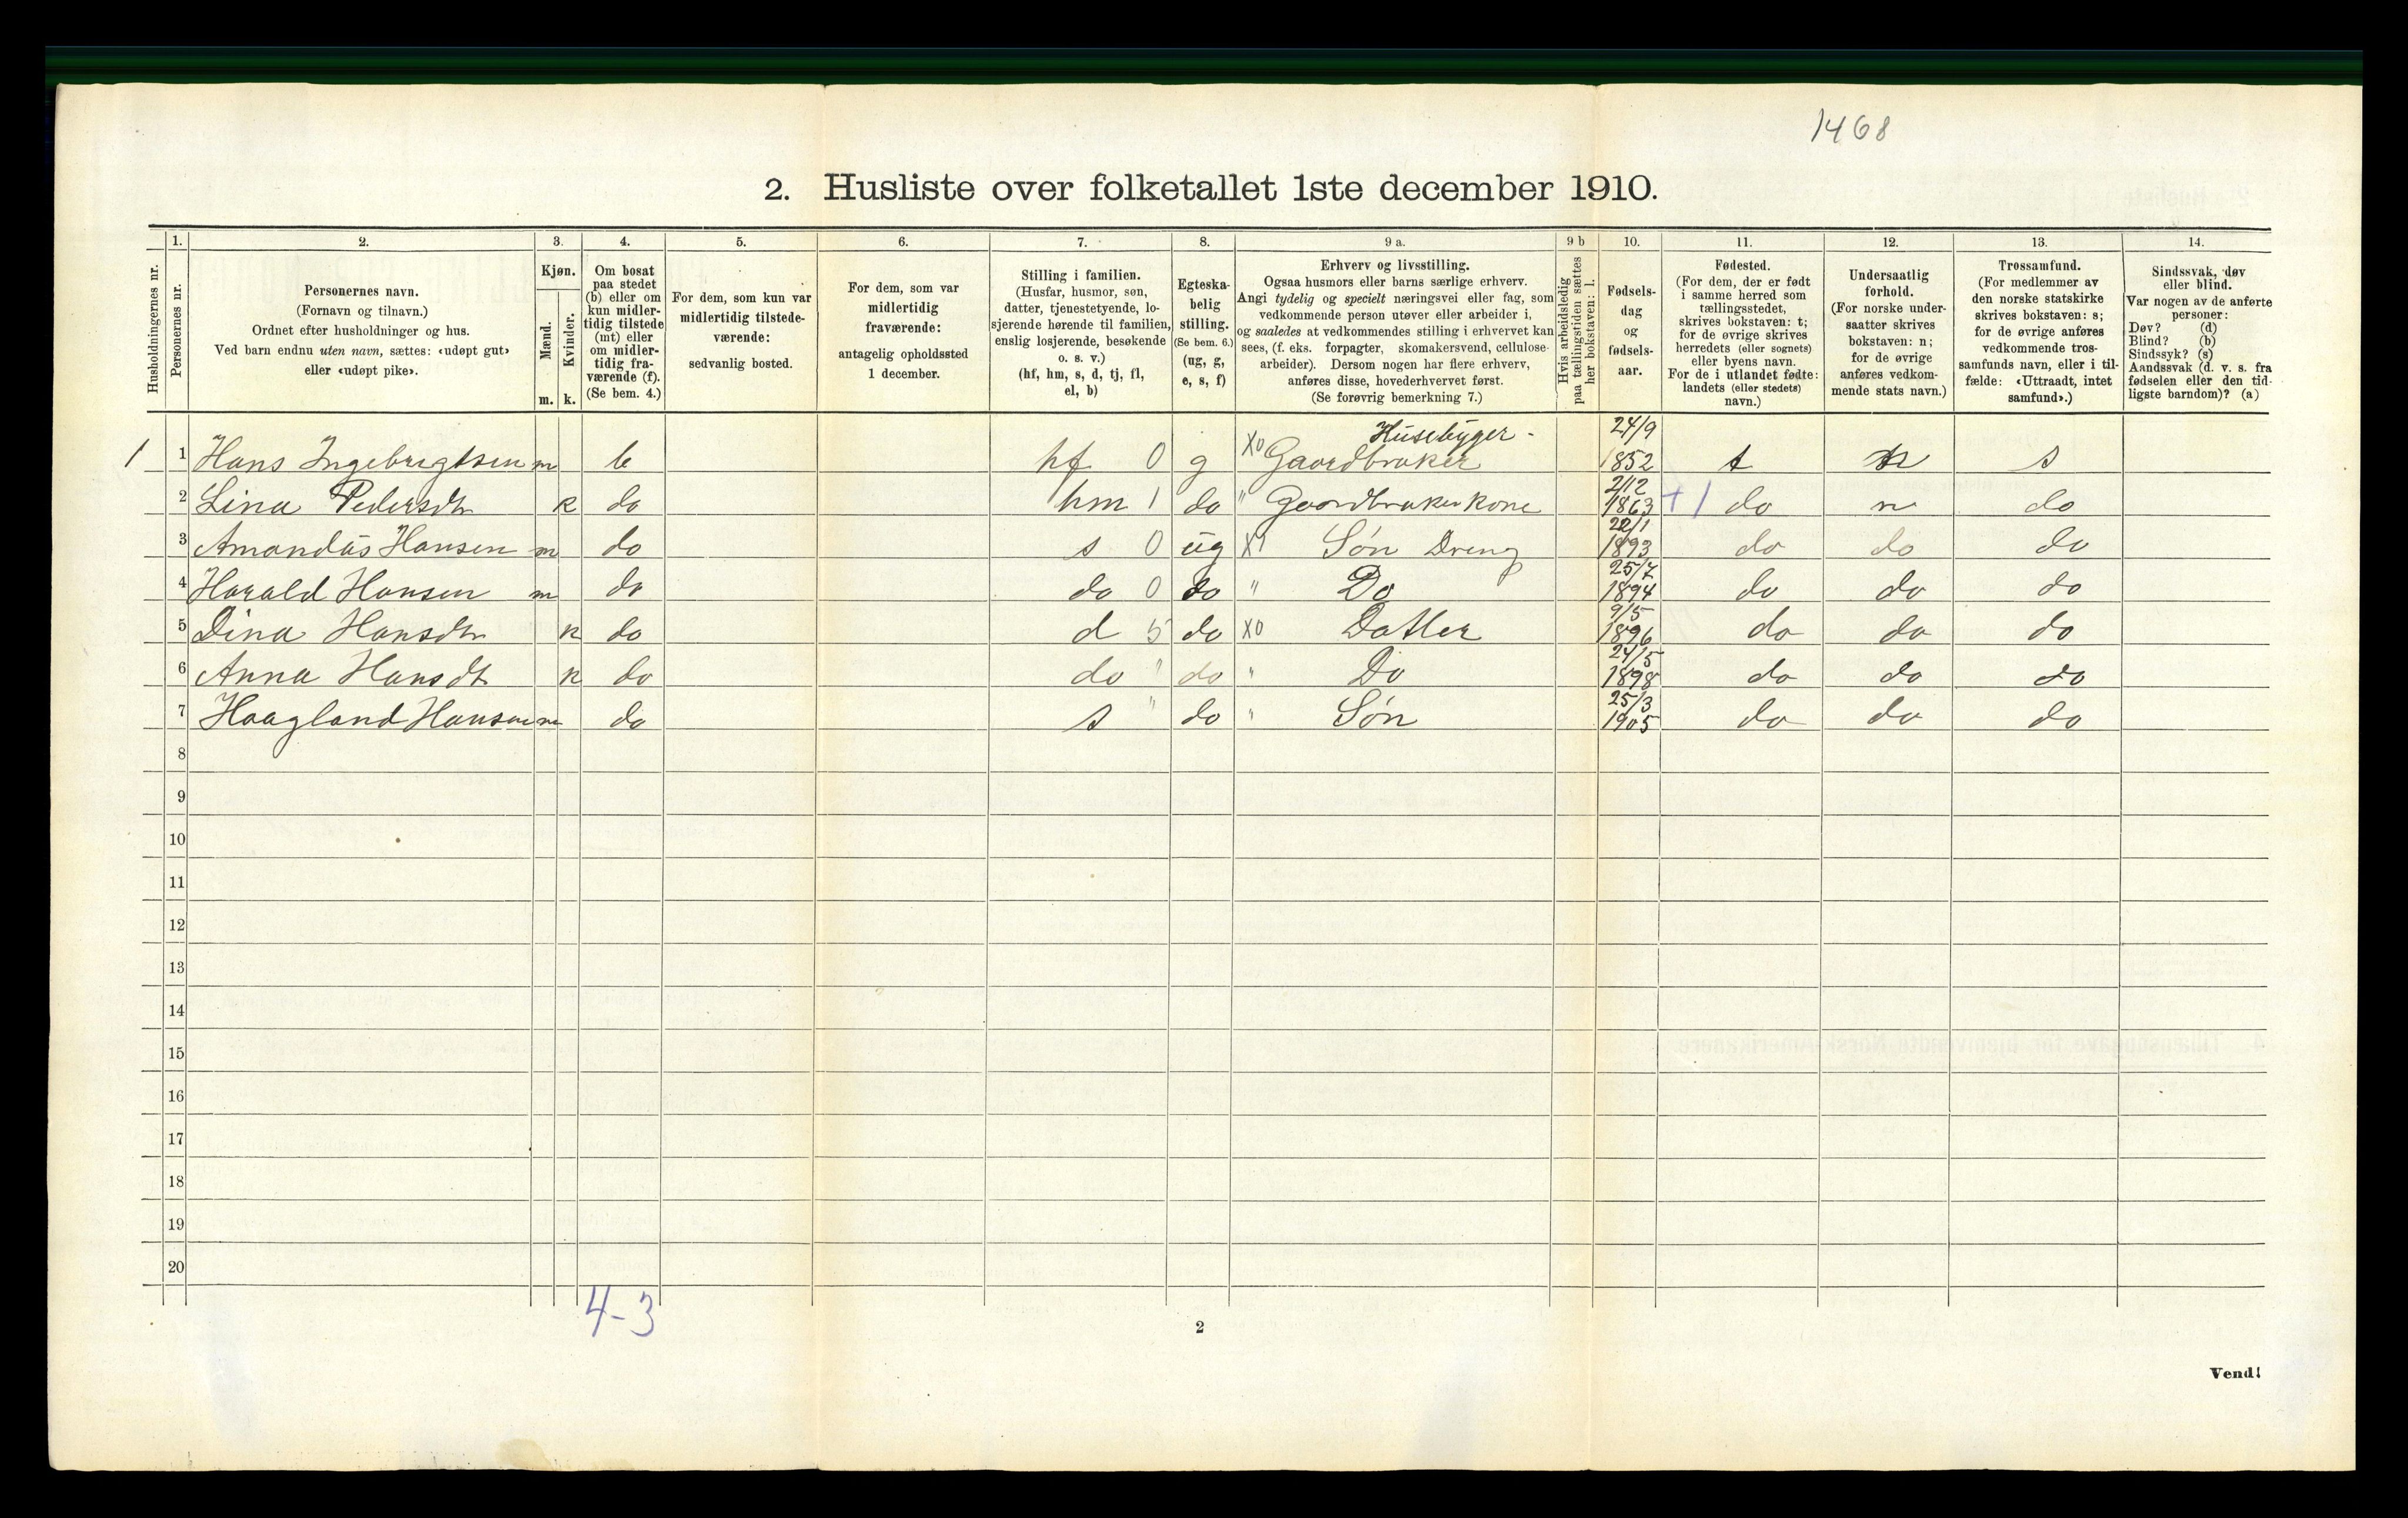 1468
2. Husliste over folketallet 1ste december 1910.
1. 2. 3. 4. 5. 6. 7. 8. 9 a. 9 b 10. 11. 12. 13. 14.
Husholdningernes nr.
Personernes nr.
Personernes navn.
(Fornavn og tilnavn.)
Ordnet efter husholdninger og hus.
Ved barn endnu uten navn, sættes: «udøpt gut»
eller «udøpt pike».
Kjøn.
Mænd.
Kvinder.
m. k.
Om bosat
paa stedet
(b) eller om
kun midler-
tidig tilstede
(mt) eller
om midler-
tidig fra-
værende (f).
(Se bem. 4.)
For dem, som kun var
midlertidig tilstede-
værende:
sedvanlig bosted.
For dem, som var
midlertidig
fraværende:
antagelig opholdssted
1 december.
Stilling i familien.
(Husfar, husmor, søn,
datter, tjenestetyende, lo-
sjerende hørende til familien,
enslig losjerende, besøkende
o. s. v.)
(hf, hm, s, d, tj, fl,
el, b)
Egteska-
belig
stilling.
(Se bem. 6.)
(ug, g,
e, s, f)
Erhverv og livsstilling.
Ogsaa husmors eller barns særlige erhverv.
Angi tydelig og specielt næringsvei eller fag, som
vedkommende person utøver eller arbeider i,
og saaledes at vedkommendes stilling i erhvervet kan
sees, (f. eks. forpagter, skomakersvend, cellulose-
arbeider). Dersom nogen har flere erhverv,
anføres disse, hovederhvervet først.
(Se forøvrig bemerkning 7.)
Hvis arbeidsledig
paa tællingstiden sættes
her bokstaven: l.
Fødsels-
dag
og
fødsels-
aar.
Fødested.
(For dem, der er født
i samme herred som
tællingsstedet,
skrives bokstaven: t;
for de øvrige skrives
herredets (eller sognets)
eller byens navn.
For de i utlandet fødte:
landets (eller stedets)
navn.)
Undersaatlig
forhold.
(For norske under-
saatter skrives
bokstaven: n;
for de øvrige
anføres vedkom-
mende stats navn.)
Trossamfund.
(For medlemmer av
den norske statskirke
skrives bokstaven: s;
for de øvrige anføres
vedkommende tros-
samfunds navn, eller i til-
fælde: «Uttraadt, intet
samfund».)
Sindssvak, døv
eller blind.
Var nogen av de anførte
personer:
Døv? (d)
Blind? (b)
Sindssyk? (s)
Aandssvak (d. v. s. fra
fødselen eller den tid-
ligste barndom)? (a)
Husebyger - 24/9
1 1 Hans Ingebrigtsen m b hf 0 g X0 Gaardbruker 1852 t n s
2/12
2 Lina Pedersdtr k do hm 1 do " Gaardbruker kone 1863 +1 do n do
22/1
3 Amandus Hansen m do s 0 ug X1 Søn Dreng 1893 do do do
25/7
4 Harald Hansen m do do 0 do " Do 1894 do do do
9/5
5 Dina Hansdtr k do d 5 do X0 Datter 1896 do do do
24/5
6 Anna Hansdt k do do " do " Do 1898 do do do
25/3
7 Haagland Hansen m do s " do " Søn 1905 do do do
8
9
10
11
12
13
14
15
16
17
18
19
20
4-3
2
Vend!